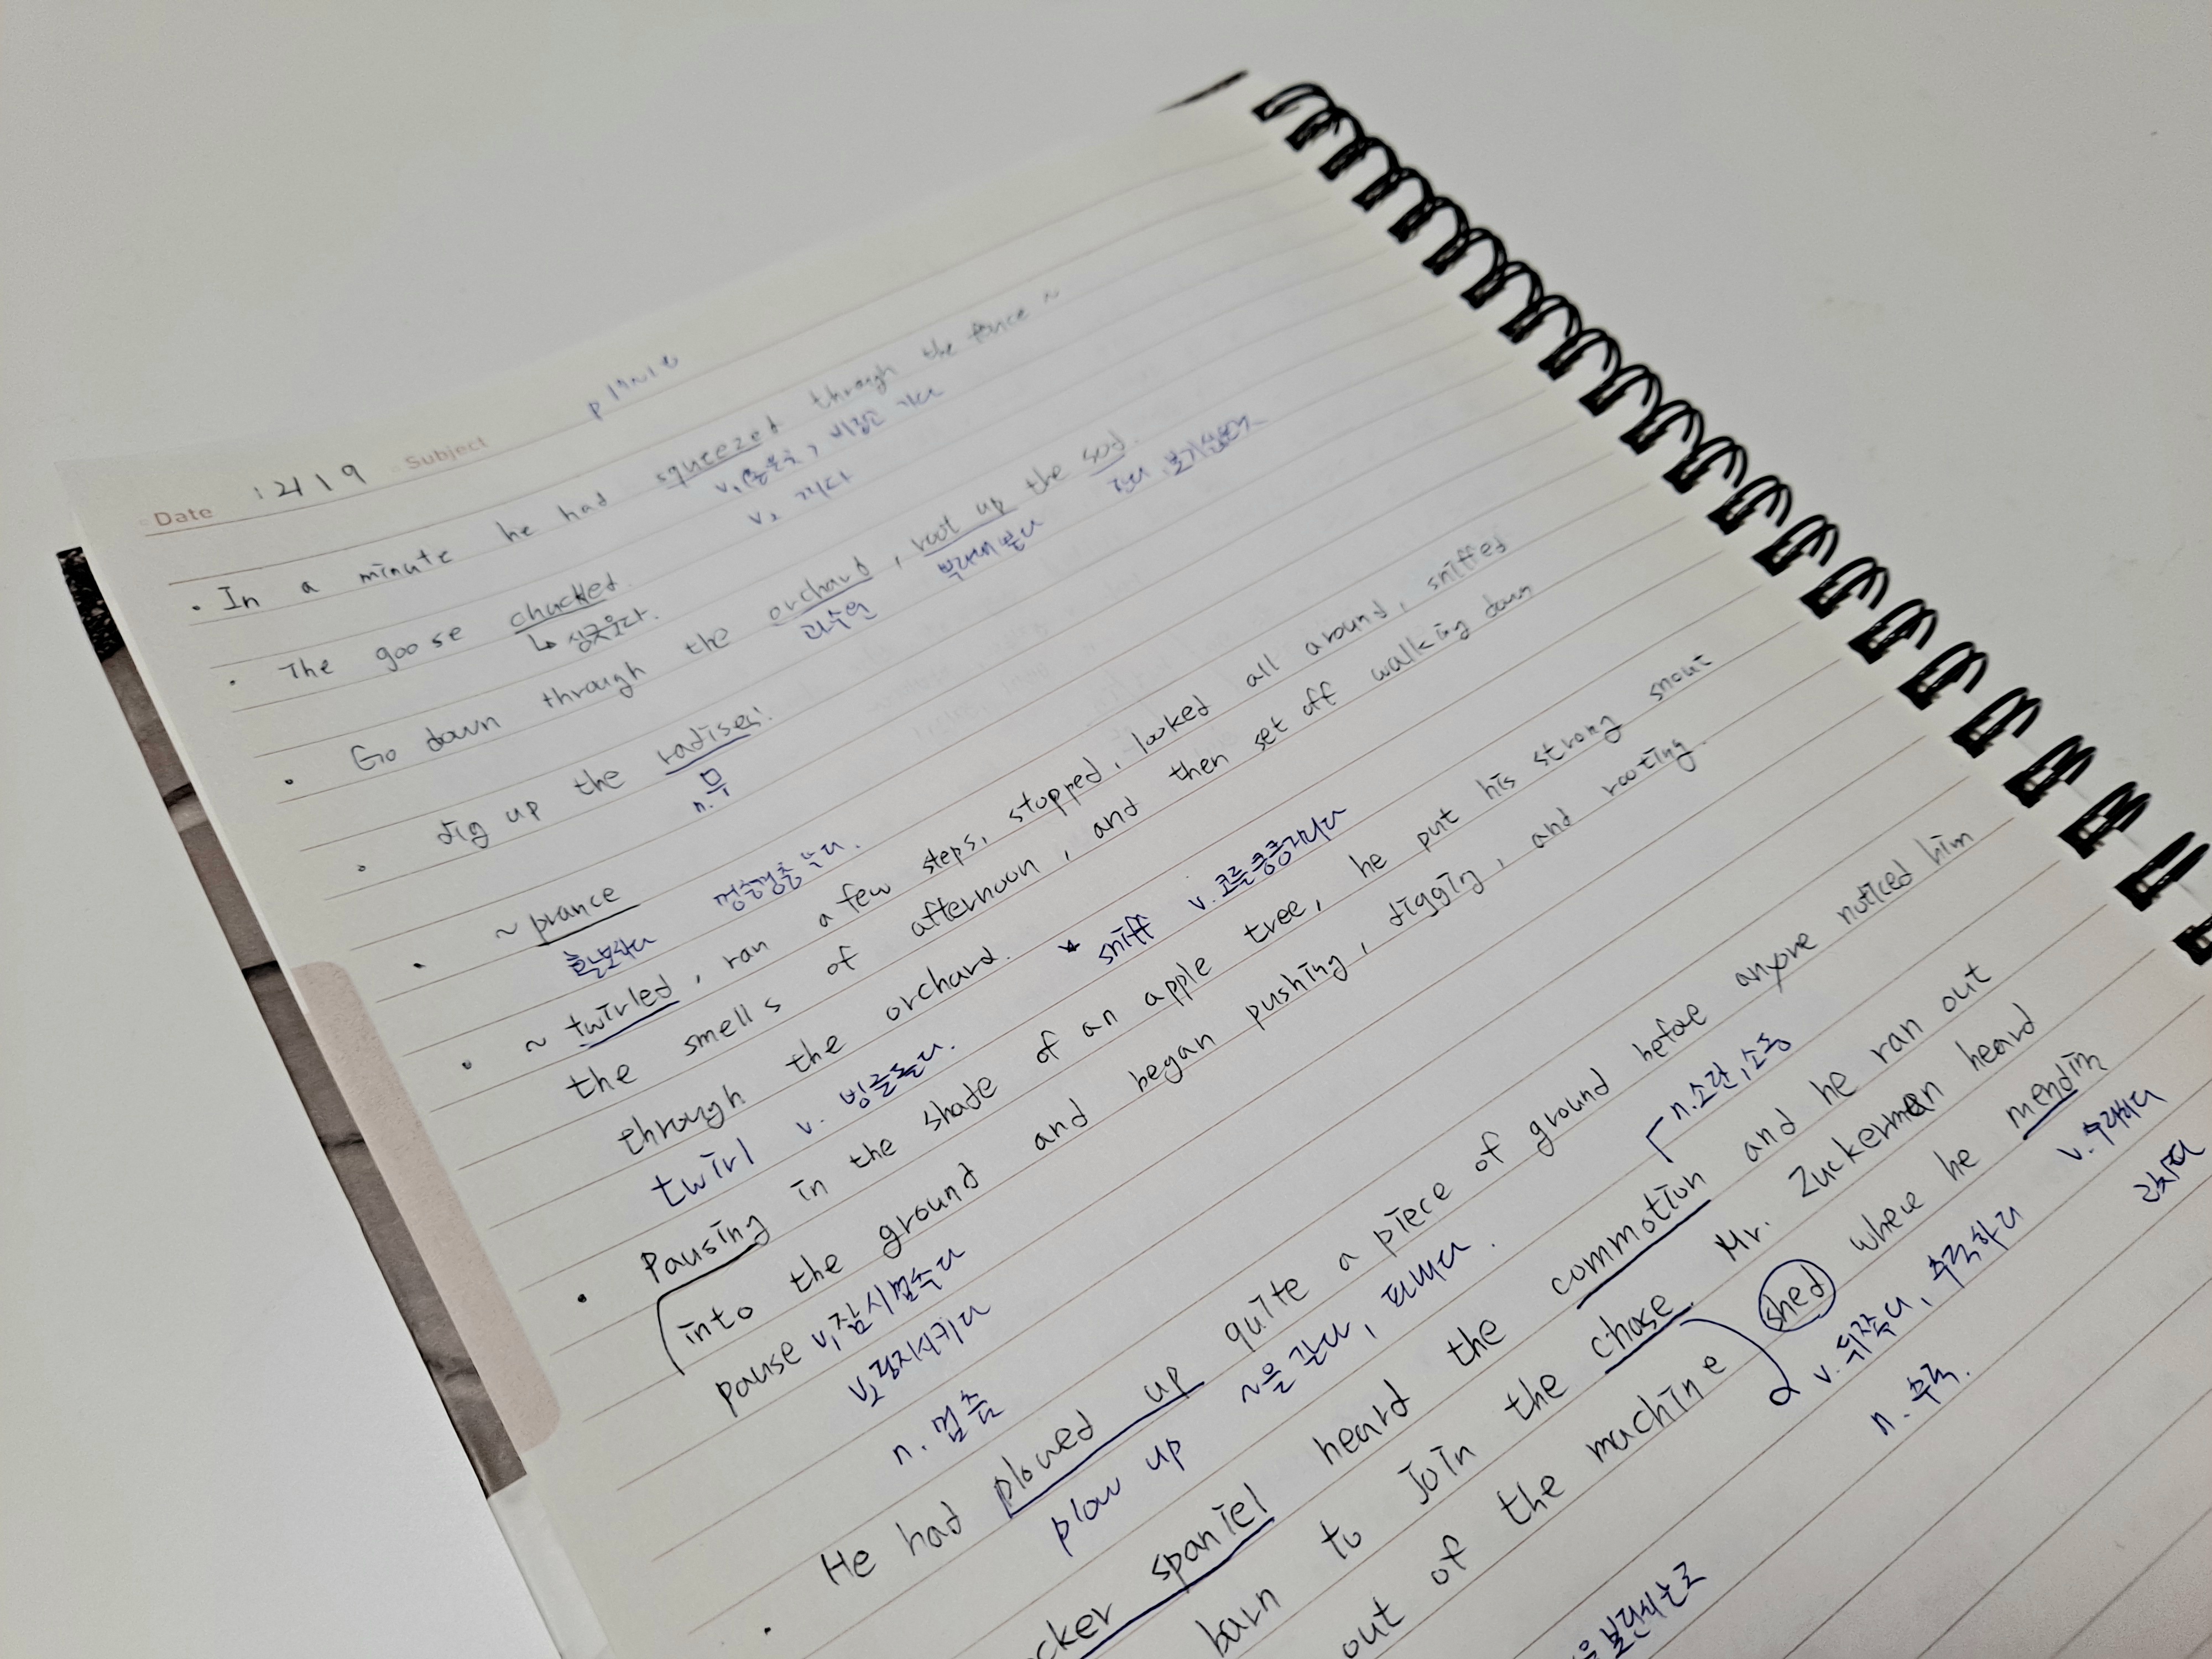 Date 12/19 Subject
• In a minute he had squeezed through the fence ~
• The goose chuckled.
• Go down through the orchard, root up the sod.
과수원
• dig up the radises!
n. 무
• ~ prance 껑충껑충 뛰다.
• ~ twirled, ran a few steps, stopped, looked all around, sniffed
the smells of afternoon, and then set off walking down
through the orchard. * sniff v. 코를 킁킁거리다
twirl v. 빙글돌다.
• Pausing in the shade of an apple tree, he put his strong snout
into the ground and began pushing, digging, and rooting.
pause v1 잠시 멈추다
v2 정지시키다
n. 멈춤
• He had plowed up quite a piece of ground before anyone noticed him
plow up ~을 갈다,
n. 소란, 소동
cker spaniel heard the commotion and he ran out
barn to join the chase. Mr. Zuckerman heard
out of the machine shed where he mendin
v. 뒤쫓다, 추적하다
n. 추적.